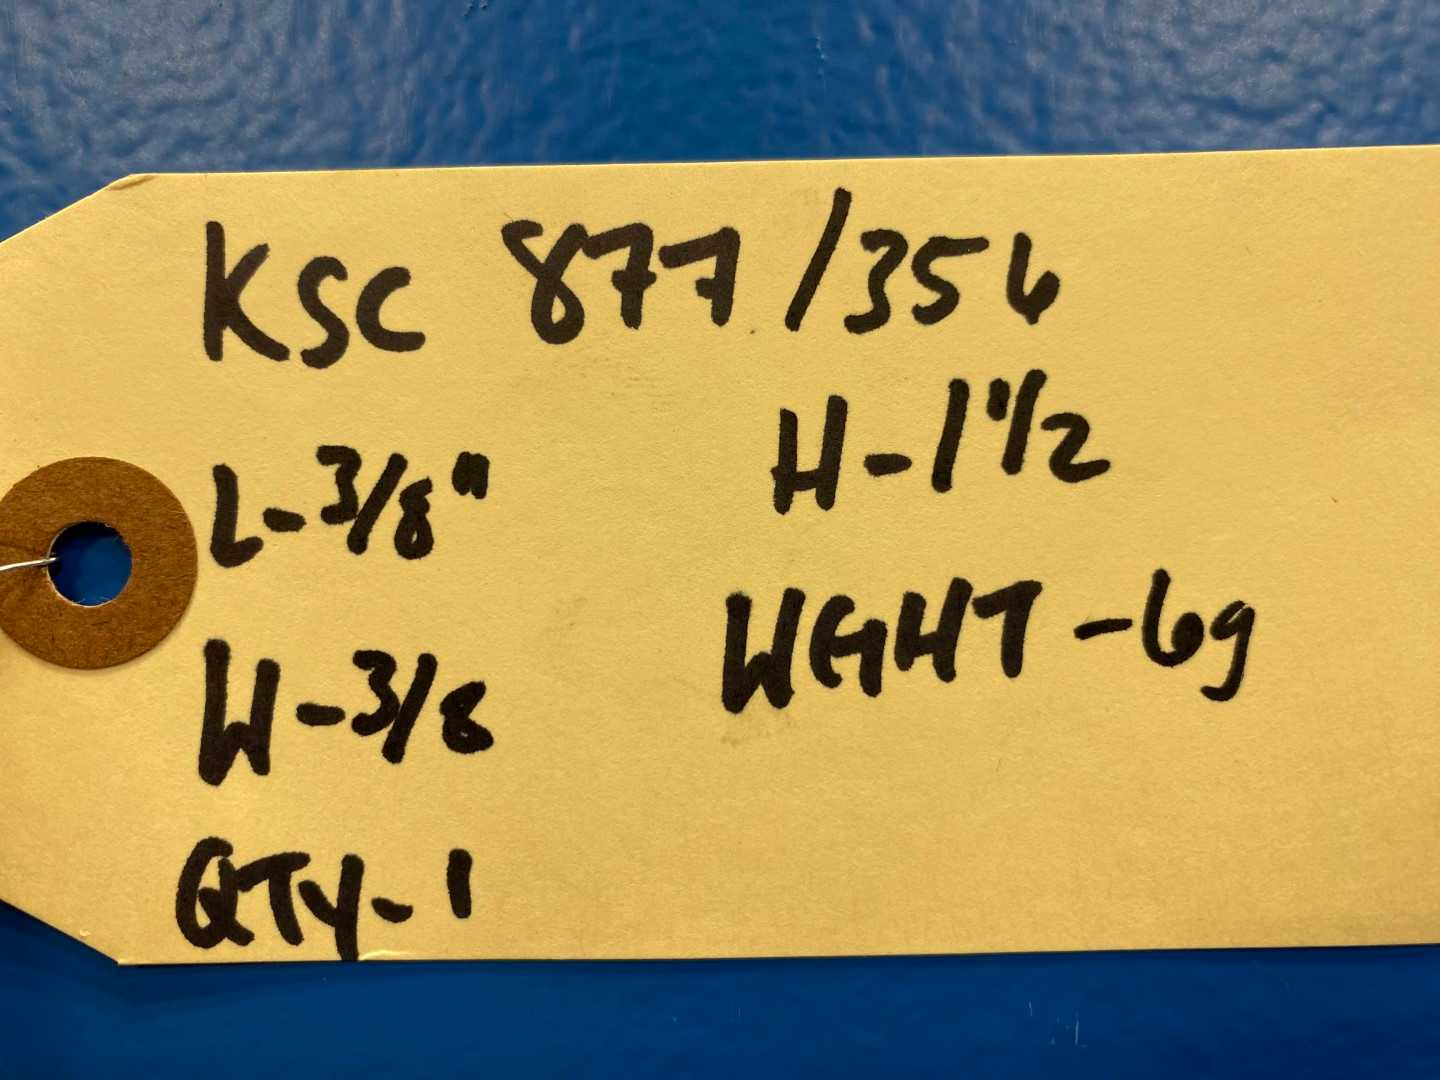 KSC 877/356
L-3/8" H-1"/2
W-3/8 WGHT-6g
QTY-1